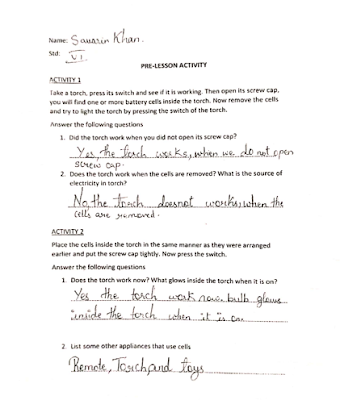 Name: Sauasin Khan.
Std: VI.
PRE-LESSON ACTIVITY
ACTIVITY 1
Take a torch, press its switch and see if it is working. Then open its screw cap,
you will find one or more battery cells inside the torch. Now remove the cells
and try to light the torch by pressing the switch of the torch.
Answer the following questions
1. Did the torch work when you did not open its screw cap?
Yes, the torch works, when we do not open
screw cap.
2. Does the torch work when the cells are removed? What is the source of
electricity in torch?
No, the torch doesnot works, when the
cells are removed.
ACTIVITY 2
Place the cells inside the torch in the same manner as they were arranged
earlier and put the screw cap tightly. Now press the switch.
Answer the following questions
1. Does the torch work now? What glows inside the torch when it is on?
Yes the torch work now bulb glows
inside the torch when it is on
2. List some other appliances that use cells
Remote, Torch and toys